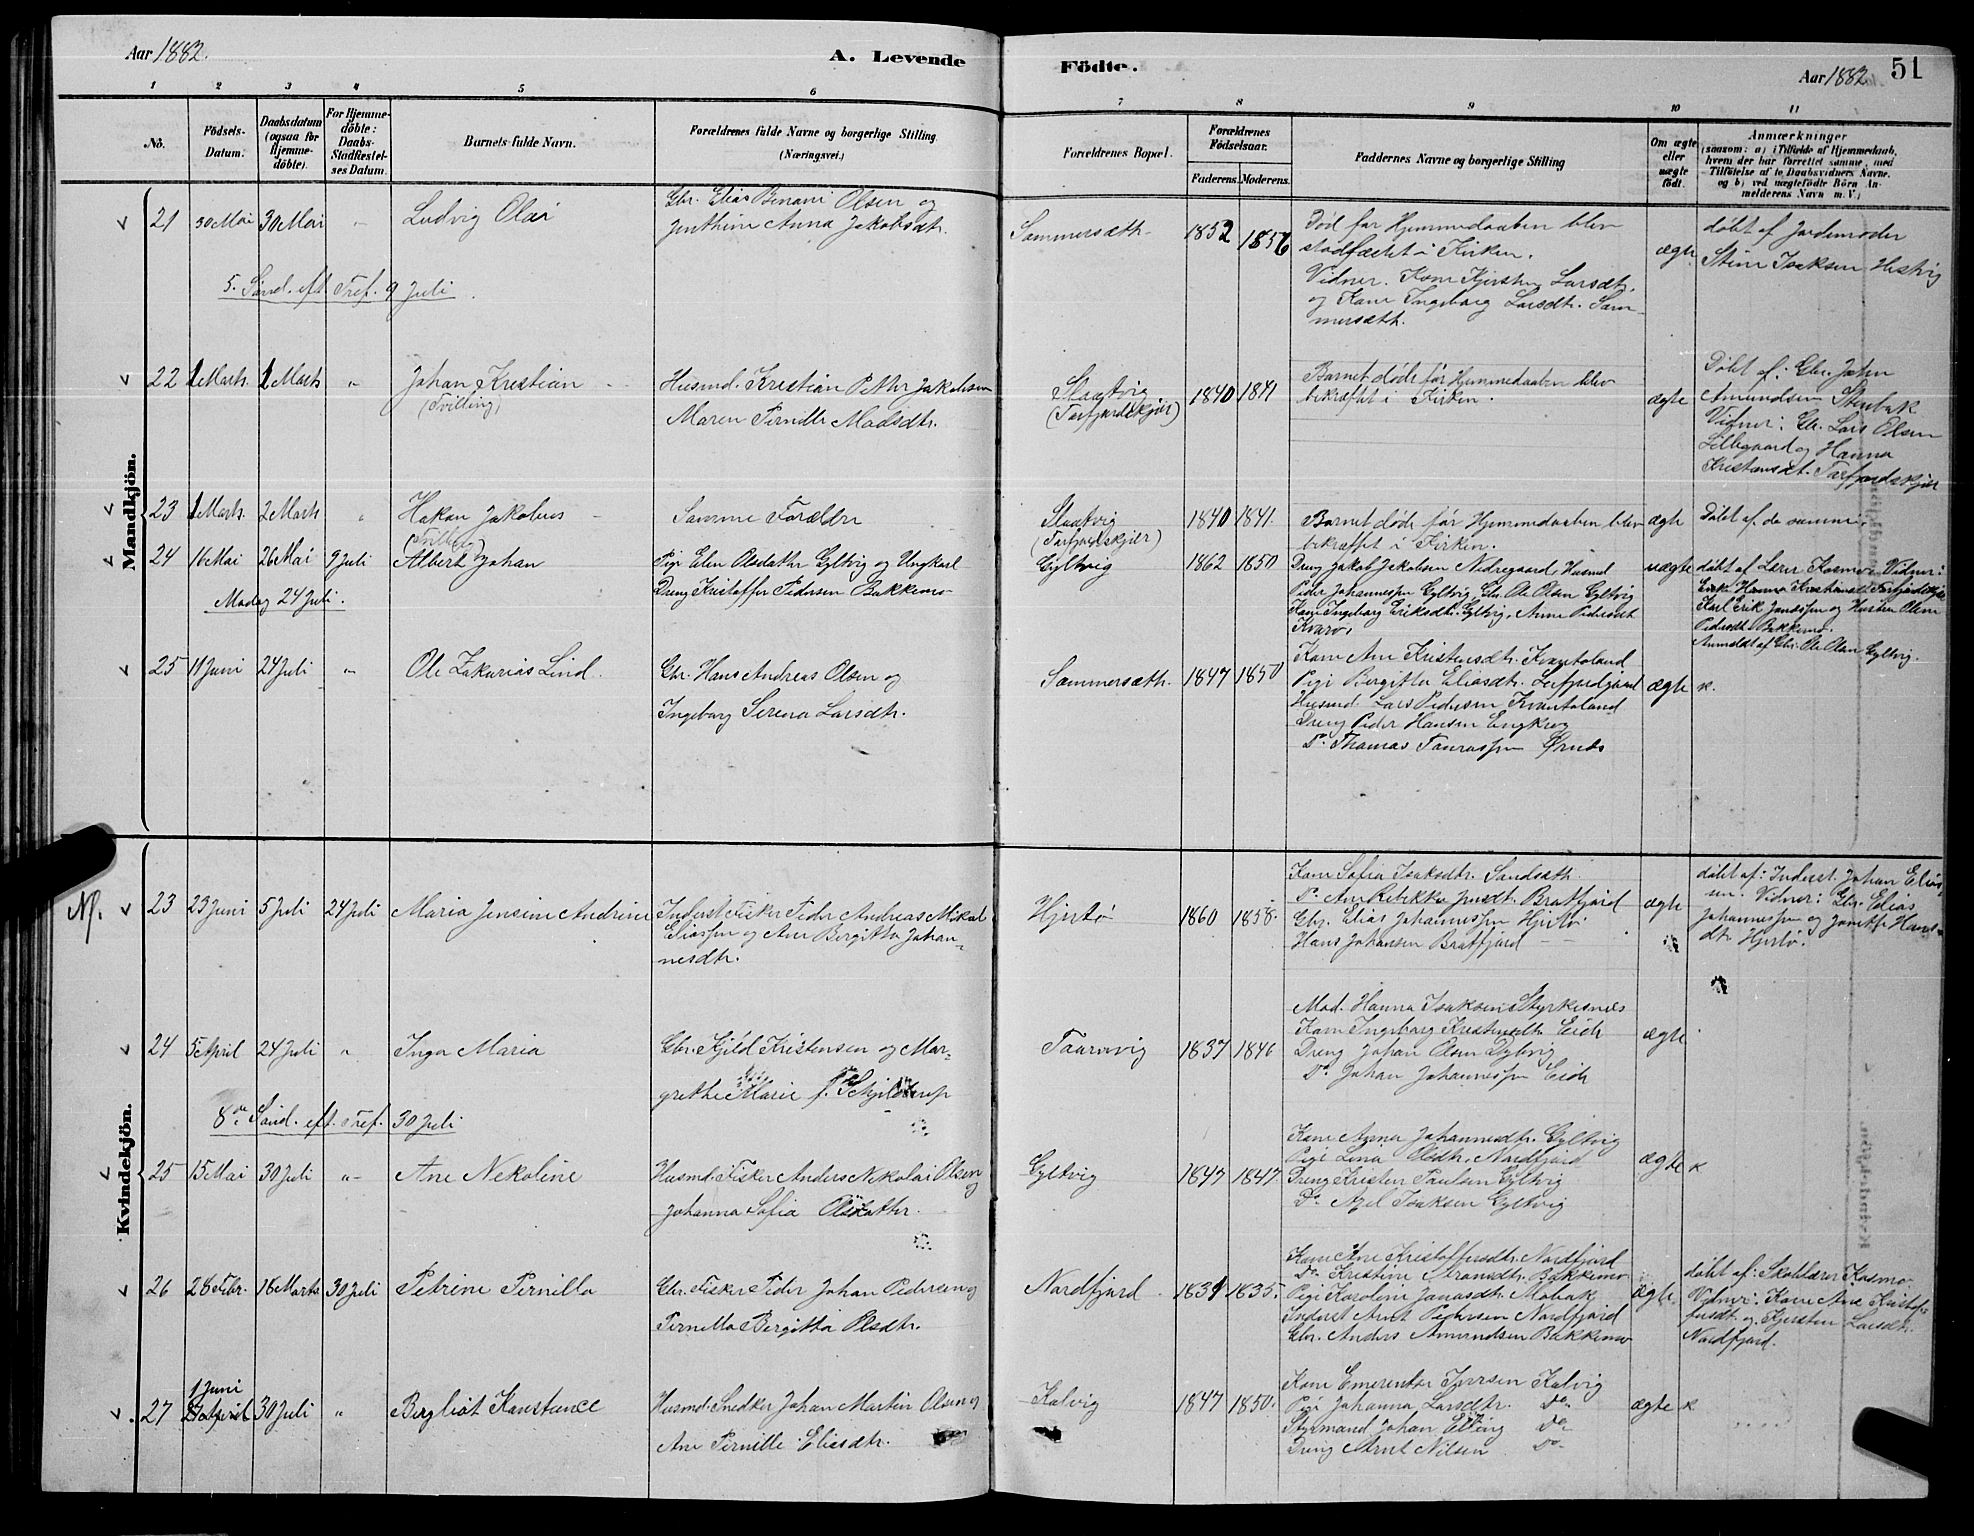 Aar 1882.
A. Levende
Födte.
Aar 1882
51
1 2 3 4 5 6 7 8 9 10 11
No.
Födsels-
Datum.
Daabsdatum
(ogsaa for
Hjemme-
döbte).
For Hjemme-
döbte:
Daabs-
Stadfæstel-
ses Datum.
Barnets fulde Navn.
Forældrenes fulde Navne og borgerlige Stilling
(Næringsvei.)
Forældrenes Bopæl.
Forældrenes
Födselsaar.
Faderens. Moderens.
Faddernes Navne og borgerlige Stilling
Om ægte
eller
uægte
födt.
Anmærkninger
(saasom: a) i Tilfælde af Hjemmedaab,
hvem der har forrettet samme, med
Tilföielse af to Daabsvidners Navne.
og b) ved uægtefödte Börn An-
melderens Navn m.V.)
Mandkjön.
21 30 Mai 30 Mai - Ludvig Olai
Gbr. Elias Benoni Olsen og
Jenthine Anna Jakobsdtr.
Sommersæth. 1852 1856
Død før Hjemmedaaben blev
stadfæstet i Kirken.
Vidner. Kone Kjersten Larsdtr.
og Kone Ingeborg Larsdtr. Som-
mersæth.
ægte
døbt af Jordemoder
Stine Isaksen Hestvig
5. Sønd. eft. Tref. 9 Juli
22 1 Marts 1 Marts " Johan Kristian
(Tvilling)
Husmd. Kristian Petter Jakobsen
Maren Pernille Madsdtr.
Slaatvig
(Torfjordskjær)
1840 1841
Barnet døde før Hjemmedaaben blev
bekræftet i Kirken.
ægte
Døbt af: Gbr. John
Amundsen Stenbak
Vidner: Gbr. Lars Olsen
Lillegaard og Hanna
Kristensdt. Torfjordskjær
23 1 Marts. 2 Marts " Hakon Jakobus
(Tvilling)
Samme Forældre
Slaatvig
(Torfjordskjær)
1840 1841.
Barnet døde før Hjemmedaaben blev
bekræftet i Kirken.
ægte
Døbt af de samme.
24 16 Mai 26 Mai 9 Juli Albert Johan
Pige Elen Olsdatter Gyltvig og Ungkarl
Dreng Kristoffer Pedersen Bakkemo
Gyltvig 1862 1850
Dreng Jakob Jakobsen Nedregaard Husmd
Peder Johannessen Gyltvig, Gbr. Ole Olsen Gyltvig
Kone Ingeborg Eriksdtr. Gyltvig, Anne Pedersdt
Kvarv
uægte
døbt af Lærer Kosmo. Vidner:
Enke Hanna Kristensdt. Torfjordskjær
Karl Erik Jonassen og Hustru Oline
Pedersdt. Bakkemo.
Anmeldt af Gbr. Ole Olsen Gyltvig.
Mandag 24 Juli.
25 11 Juni 24 Juli " Ole Zakarias Lind.
Gbr. Hans Andreas Olsen og
Ingeborg Serena Larsdtr.
Sommersæth. 1847 1850
Kone Ane Kristensdtr. Kvantoland
Pige Bergitta Eliasdtr. Leifjordgaard
Husmd. Lars Pedersen Kvantoland
Dreng Peder Hansen Engkrog
Do. Thomas Ørnes
ægte k.
Kvindekjön.
N.
23 23 Juni 5 Juli 24 Juli Maria Jensine Andrine
Inderst Fisker Peder Andreas Mikal
Eliassen og Ane Bergitta Johan-
nesdtr.
Hjertø 1860 1858.
Kone Sofia Isaksdtr. Sandsæth
Do. Ane Rebekka Jensdt. Bratfjord
Gbr. Elias Johannessen Hjertø
Hans Johansen Bratfjord - -
ægte
døbt af: Inderst. Johan Elias-
sen. Vidner: Gbr. Elias
Johannessen og Hans-
dtr. Hjertø.
24 5 April 24 Juli " Inga Maria
Gbr. Kjeld Kristensen og Mar-
grethe Marie f. Schjelderup
Taarnvig 1837 1846
Mad. Hanna Isaksen Styrkesnes
Kone Ingeborg Kristensdtr. Eide
Dreng Johan Olsen Dybvig
Do. Johan Johannessen Eide
ægte
8de Sønd. eft. Tref. 30 Juli
25 15 Mai 30 Juli " Ane Nekoline
Husmd. Fisker Anders Nekolai Olsen
og
Johanna Sofia Olsdatter.
Gyltvig 1847 1847.
Kone Anna Johannesdtr. Gyltvig
Pige Lina Olsdtr. Nordfjord
Dreng Kristen Paulsen Gyltvig
Do. Axel Isaksen Gyltvig
ægte k
26 28 Febr. 18 Marts 30 Juli Petrine Pernilla
Gbr. Fisker Peder Johan Pedersen og
Pernilla Bergitta Olsdtr.
Nordfjord 1834 1835.
Kone Ane Kristoffersdtr. Nordfjord
Do. Kristine Aronsdtr. Bakkemo
Pige Karoline Jonasdtr. Mobak
Inderst Arnt Pedersen Nordfjord
Gbr. Anders Amundsen Bakkemo
ægte
døbt af: Skolelærer Kosmo
Vidner: Kone Ane Kristof-
fersdt. og Kjersten Larsdtr.
Nordfjord.
1 Juni
27 27 April 30 Juli " Bergliot Konstance
Husmd. Snedker Johan Martin Olsen og
Ane Pernille Eliasdtr.
Kalvig 1847 1850.
Kone Emerentse Iversen Kalvig
Pige Johanna Larsdtr. Do
Styrmand Johan Elling Do
Dreng Arnt Nilsen Do
ægte k